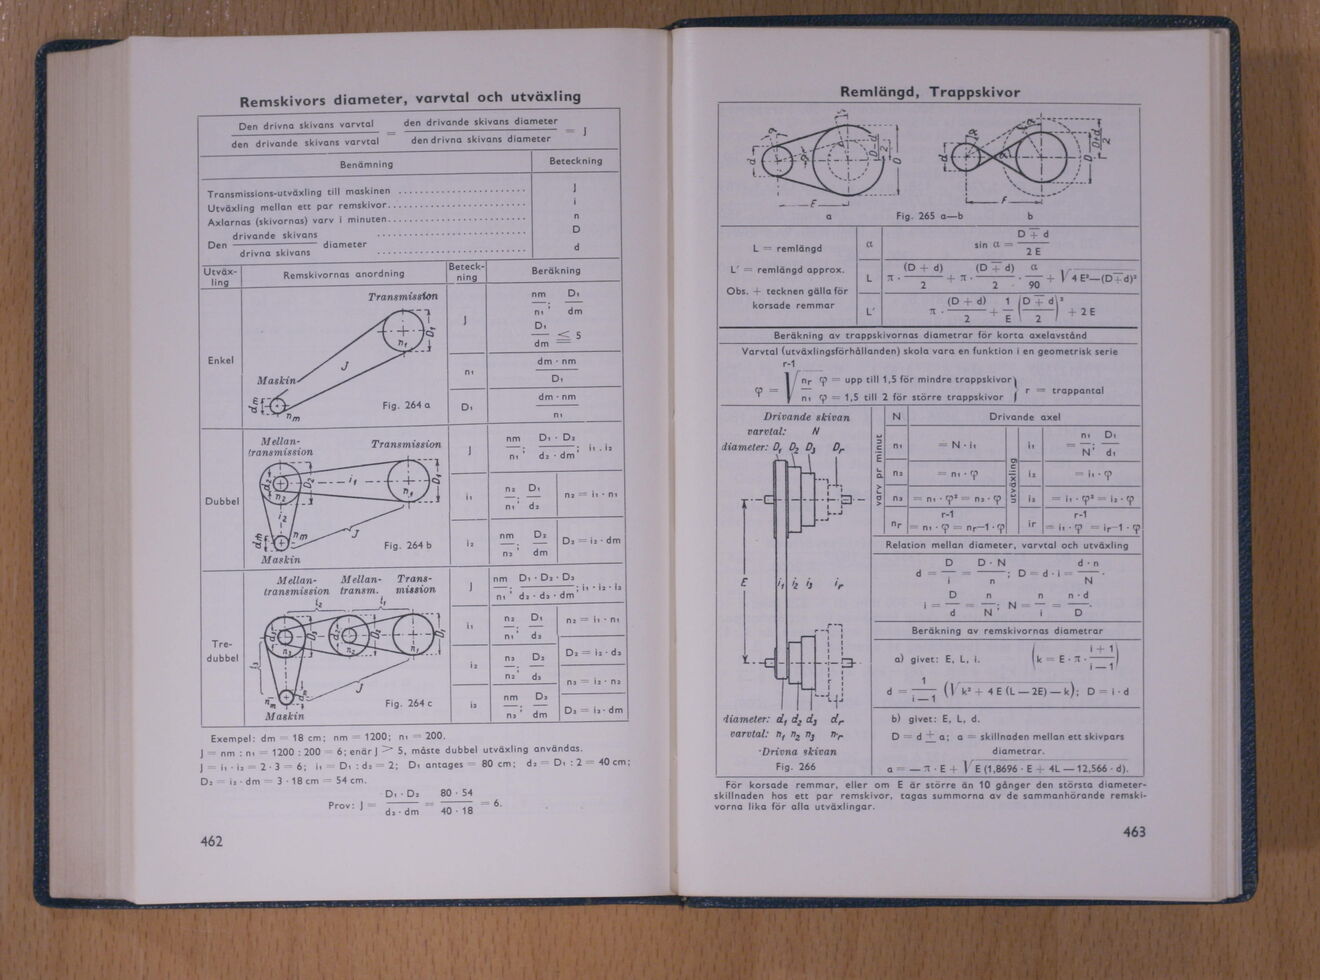 Remskivors diameter, varvtal och utväxling
Den drivna skivans varvtal / den drivande skivans varvtal = den drivande skivans diameter / den drivna skivans diameter = J
Benämning Beteckning
Transmissions-utväxling till maskinen ........................ J
Utväxling mellan ett par remskivor.......................... i
Axlarnas (skivornas) varv i minuten.......................... n
Den drivande skivans diameter ........................... D
drivna skivans ........................... d
Utväx-ling Remskivornas anordning Beteck-ning Beräkning
Enkel
Transmission
Maskin
J
D₁
n₁
dm
nm
Fig. 264 a
J nm / n₁ ; D₁ / dm
D₁ / dm ≦ 5
n₁ dm · nm / D₁
D₁ dm · nm / n₁
Dubbel
Mellan-
transmission
Transmission
d₂ D₂ n₂ i₁ n₁ D₁
i₂ nm J dm
Maskin
Fig. 264 b
J nm / n₁ ; D₁ · D₂ / d₂ · dm ; i₁ . i₂
i₁ n₂ / n₁ ; D₁ / d₂ n₂ = i₁ · n₁
i₂ nm / n₂ ; D₂ / dm D₂ = i₂ · dm
Tre-
dubbel
Mellan- Mellan- Trans-
transmission transm. mission
i₂ i₁
d₃ D₃ n₃ d₂ D₂ n₂ n₁ D₁
i₃ J nm dm
Maskin
Fig. 264 c
J nm / n₁ ; D₁ · D₂ · D₃ / d₂ · d₃ · dm ; i₁ · i₂ · i₃
i₁ n₂ / n₁ ; D₁ / d₂ n₂ = i₁ · n₁
i₂ n₃ / n₂ ; D₂ / d₃ D₂ = i₂ · d₃
n₃ = i₂ · n₂
i₃ nm / n₃ ; D₃ / dm D₃ = i₃ · dm
Exempel: dm = 18 cm; nm = 1200; n₁ = 200.
J = nm : n₁ = 1200 : 200 = 6; enär J > 5, måste dubbel utväxling användas.
J = i₁ · i₂ = 2 · 3 = 6; i₁ = D₁ : d₂ = 2; D₁ antages = 80 cm; d₂ = D₁ : 2 = 40 cm;
D₂ = i₂ · dm = 3 · 18 cm = 54 cm.
Prov: J = D₁ · D₂ / d₂ · dm = 80 · 54 / 40 · 18 = 6.
462
Remlängd, Trappskivor
d α E D D−d / 2
d α F D D+d / 2
a Fig. 265 a—b b
L = remlängd
L' = remlängd approx.
Obs. + tecknen gälla för
korsade remmar
α sin α = D ∓ d / 2 E
L π · (D + d) / 2 + π · (D ∓ d) / 2 · α / 90 + √ 4 E²—(D∓d)²
L' π · (D + d) / 2 + 1 / E (D ∓ d / 2)² + 2 E
Beräkning av trappskivornas diametrar för korta axelavstånd
Varvtal (utväxlingsförhållanden) skola vara en funktion i en geometrisk serie
φ = r-1 √ nr / n₁ φ = upp till 1,5 för mindre trappskivor
φ = 1,5 till 2 för större trappskivor
r = trappantal
Drivande skivan
varvtal: N
diameter: D₁ D₂ D₃ Dr
E i₁ i₂ i₃ ir
diameter: d₁ d₂ d₃ dr
varvtal: n₁ n₂ n₃ nr
Drivna skivan
Fig. 266
N Drivande axel
varv pr minut
utväxling
n₁ = N · i₁ i₁ = n₁ / N ; D₁ / d₁
n₂ = n₁ · φ i₂ = i₁ · φ
n₃ = n₁ · φ² = n₂ · φ i₃ = i₁ · φ² = i₂ · φ
nr = n₁ · φ r-1 = nr—1 · φ ir = i₁ · φ r-1 = ir—1 · φ
Relation mellan diameter, varvtal och utväxling
d = D / i = D · N / n ; D = d · i = d · n / N .
i = D / d = n / N ; N = n / i = n · d / D .
Beräkning av remskivornas diametrar
a) givet: E, L, i. (k = E · π · i + 1 / i — 1)
d = 1 / i — 1 (√ k² + 4 E (L — 2E) — k); D = i · d
b) givet: E, L, d.
D = d ± a; a = skillnaden mellan ett skivpars
diametrar.
a = — π · E + √ E (1,8696 · E + 4L — 12,566 · d).
För korsade remmar, eller om E är större än 10 gånger den största diameter-
skillnaden hos ett par remskivor, tagas summorna av de sammanhörande remski-
vorna lika för alla utväxlingar.
463